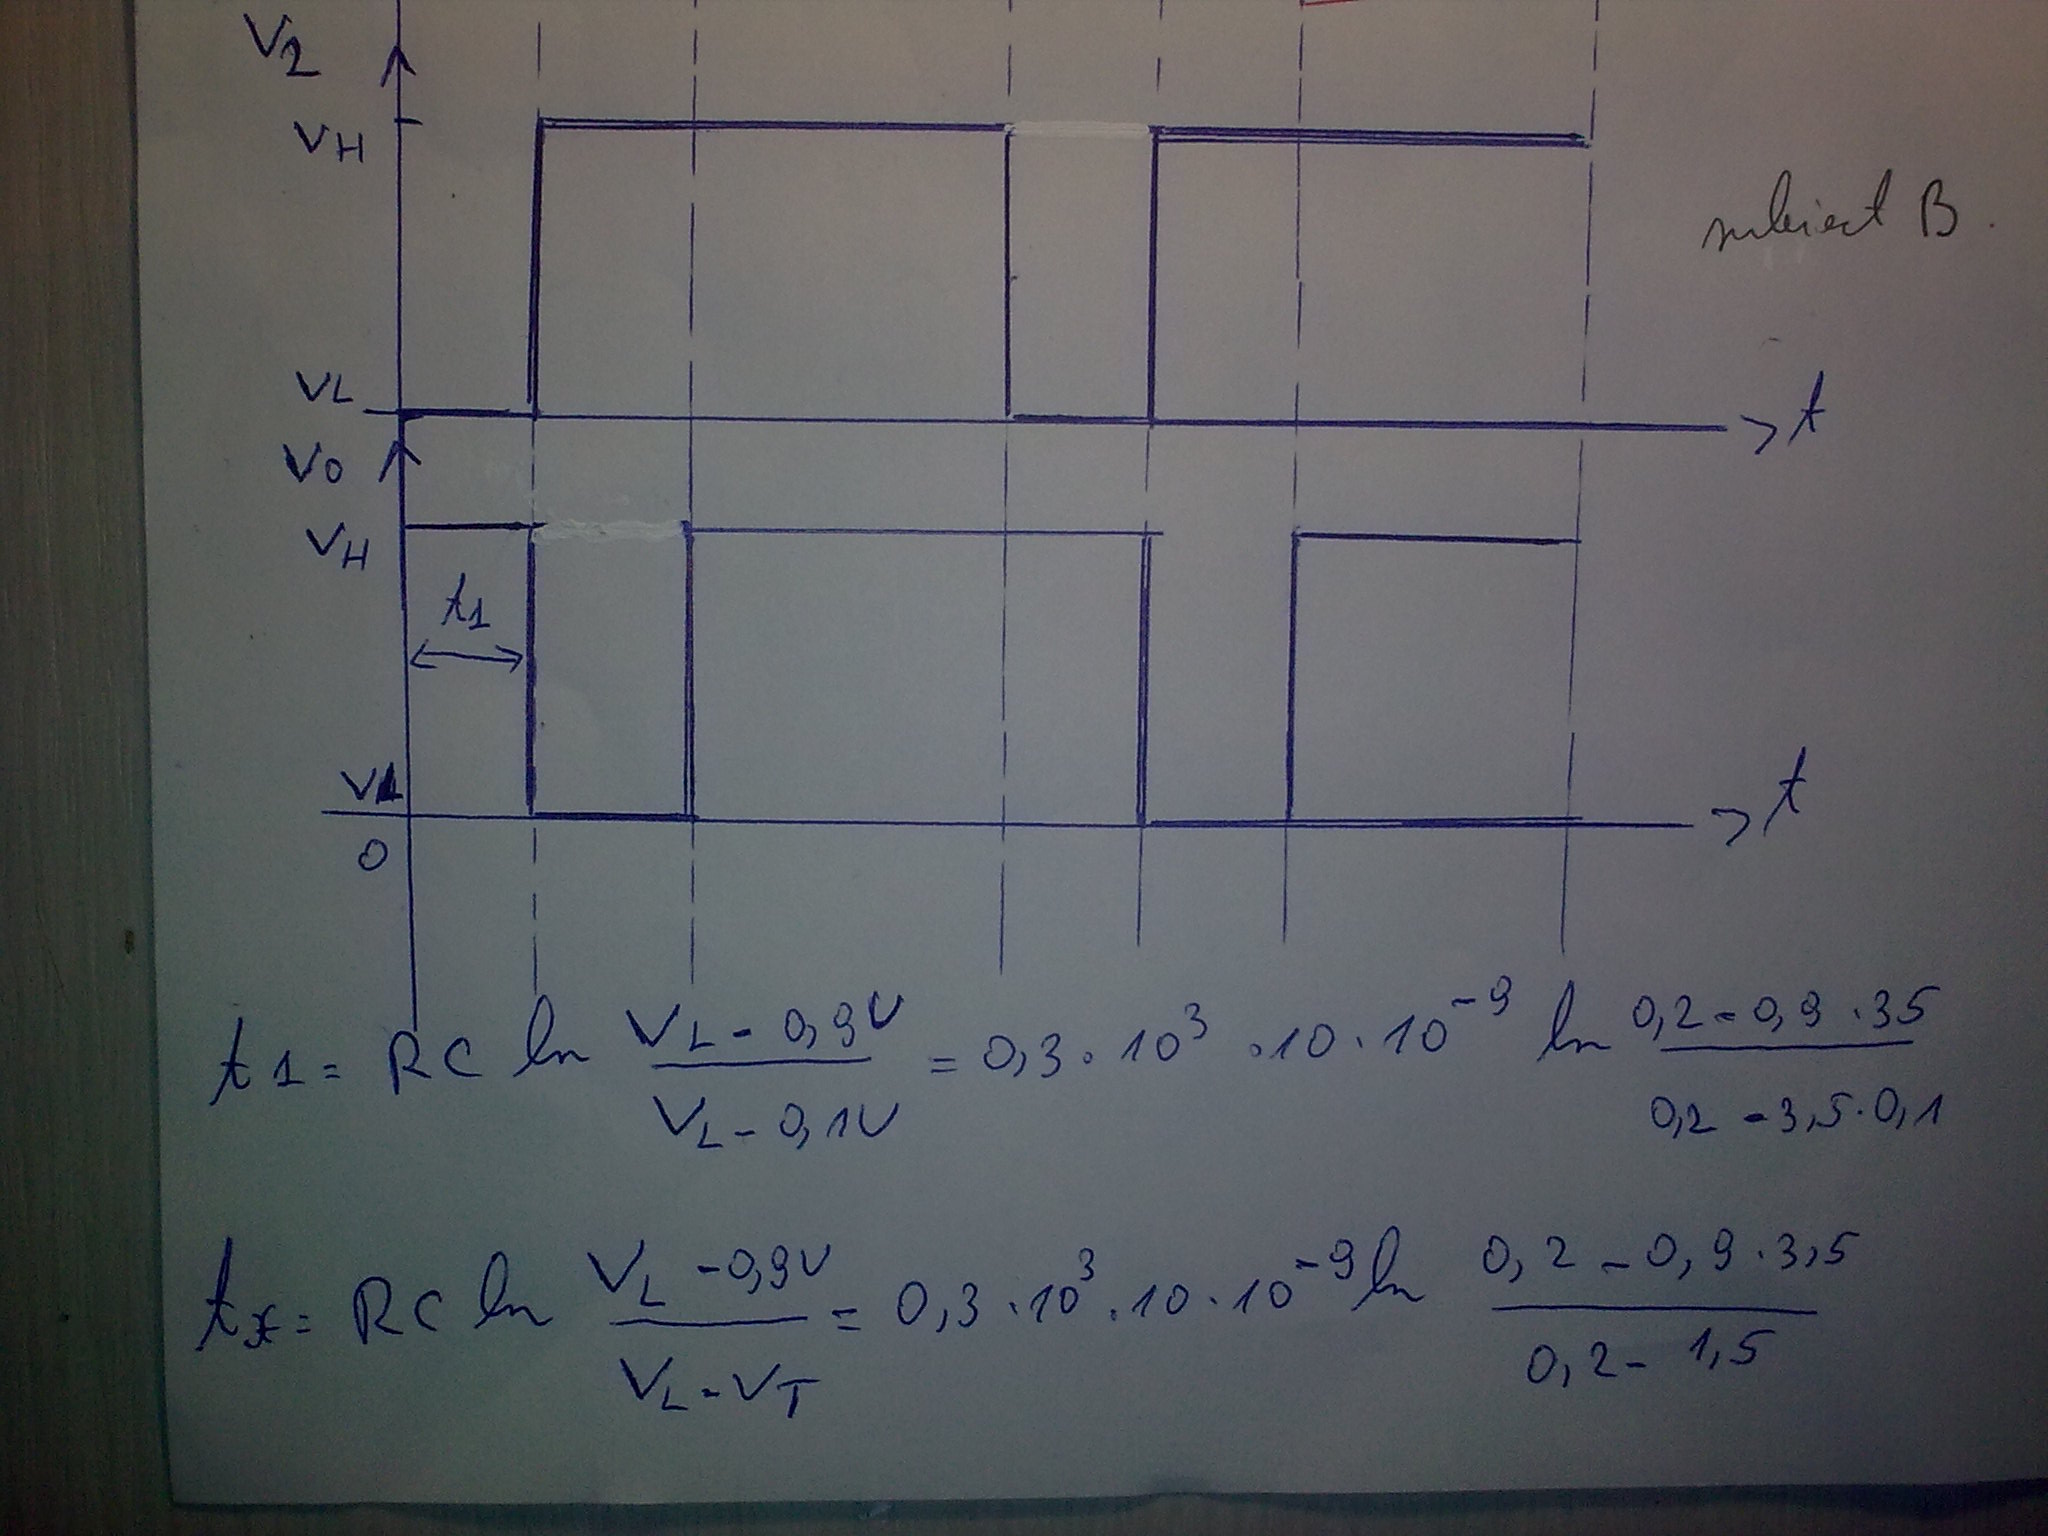 V2
VH
subiect B.
VL
t
V0
VH
t1
VL
t
0
t1 = RC ln (VL - 0,9V)/(VL - 0,1V) = 0,3 · 10³ · 10 · 10⁻⁹ ln (0,2 - 0,9 · 35)/(0,2 - 3,5 · 0,1)
tx = RC ln (VL - 0,9V)/(VL - VT) = 0,3 · 10³ · 10 · 10⁻⁹ ln (0,2 - 0,9 · 3,5)/(0,2 - 1,5)